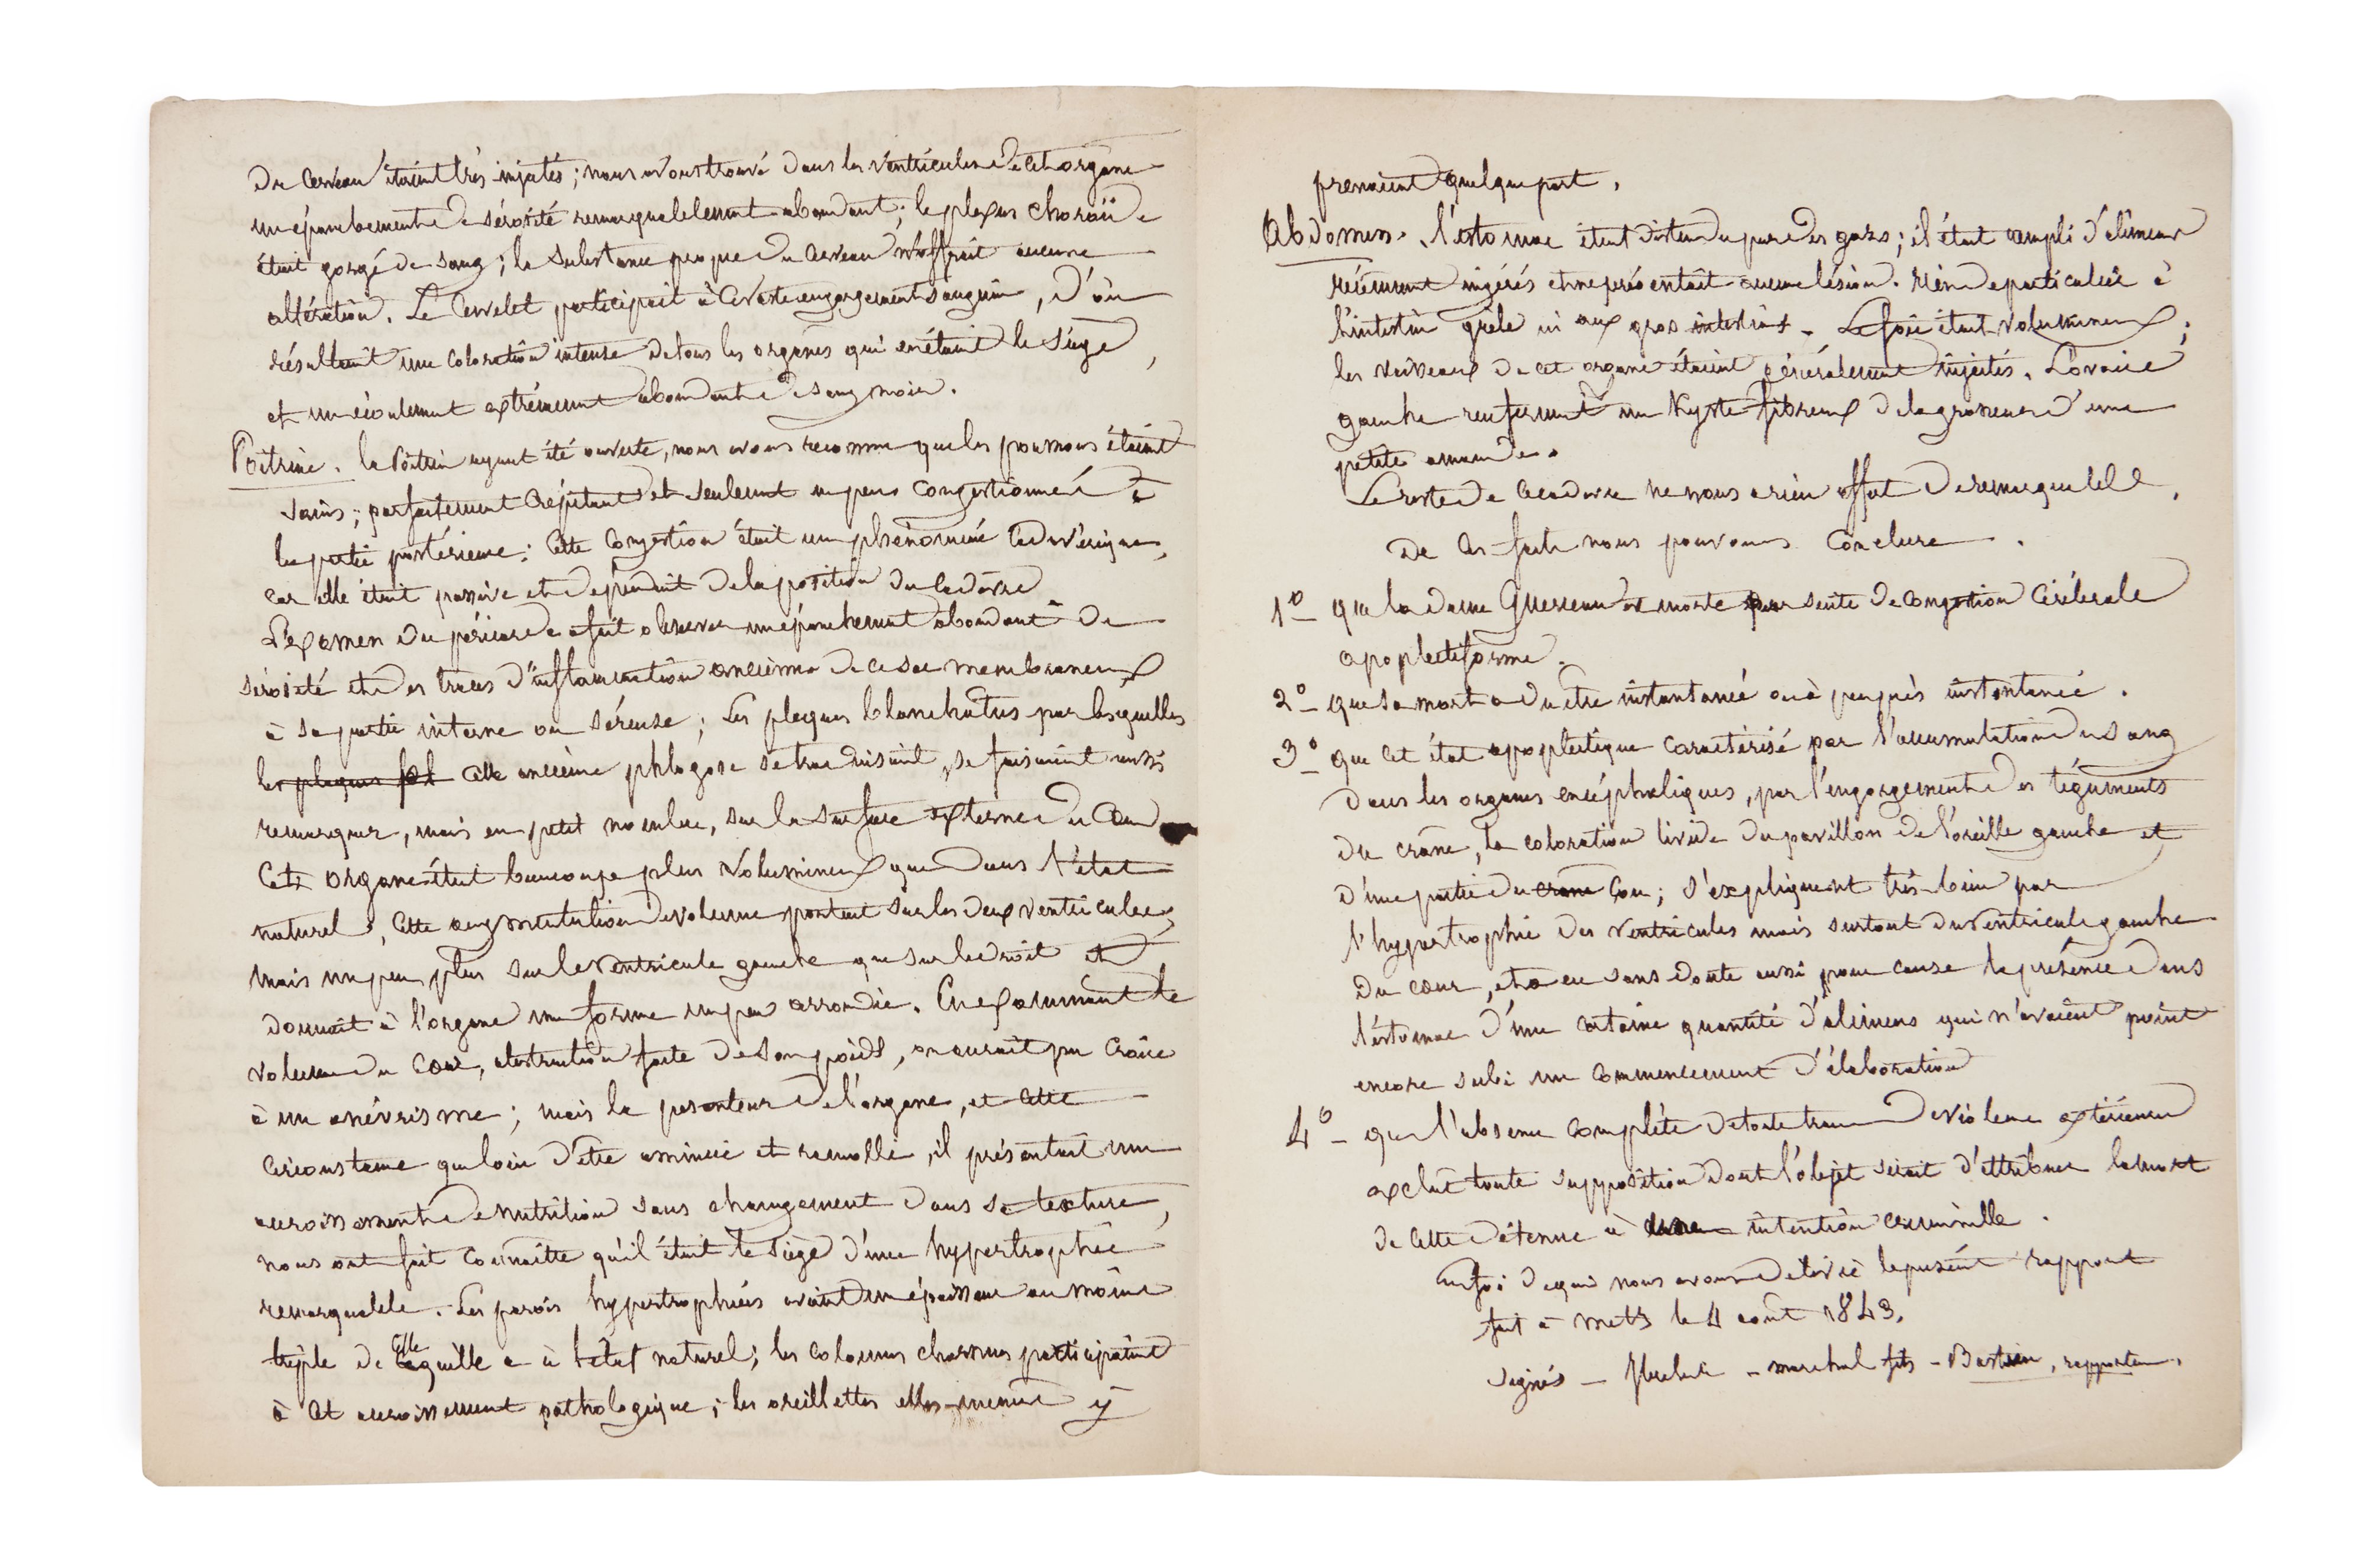 du cerveau étaient très injectés; nous avons trouvé dans les ventricules de cet organe
un épanchement de sérosité remarquablement abondant; le plexus choroïde
était gorgé de sang; la substance propre du cerveau n'offrait aucune
altération. Le Cervelet participait à ce vaste engorgement sanguin, d'où
résultait une coloration intense de tous les organes qui en étaient le siège,
et un écoulement extrêmement abondant de sang noir.
Poitrine. la Poitrine ayant été ouverte, nous avons reconnu que les poumons étaient
sains; parfaitement crépitans et seulement un peu congestionnés à
la partie postérieure; cette congestion était un phénomène cadavérique,
car elle était passive et dépendait de la position du cadavre
L'examen du péricarde a fait observer un épanchement abondant de
sérosité et des traces d'inflammation ancienne de ce sac membraneux
à sa partie interne ou séreuse; Les plaques blanchatres par lesquelles
les plaques cette ancienne phlogose se traduisaient, se faisaient aussi
remarquer, mais en petit nombre, sur la surface externe du Cœur
Cet organe était beaucoup plus volumineux que dans l'état
naturel, cette augmentation de volume portait sur les deux ventricules
mais un peu plus sur le ventricule gauche que sur le droit et
donnait à l'organe une forme un peu arrondie. En examinant le
volume du cœur, abstraction faite de son poids, on aurait pu croire
à un anévrisme; mais la pesanteur de l'organe, et cette
circonstance que loin d'être amincie et ramolli, il présentait un
accroissement de nutrition sans changement dans sa texture,
nous ont fait connaître qu'il était le siège d'une hypertrophie
remarquable. Les parois hypertrophiées avaient une épaisseur au moins
triple de celle qu'elle a à l'état naturel; les colonnes charnues participaient
à cet accroissement pathologique; les oreillettes elles-mêmes y
prenaient quelque part.
Abdomen. l'estomac était distendu par des gazs; il était rempli d'alimens
récemment ingérés et ne présentait aucune lésion. rien de particulier à
l'intestin grêle ni aux gros intestins - Le foie était volumineux;
les vaisseaux de cet organe étaient généralement injectés. L'ovaire
gauche renfermait un kyste fibreux de la grosseur d'une
petite amande.
Le reste du cadavre ne nous a rien offert de remarquable.
De ces faits nous pouvons conclure.
1º que la dame est morte par suite de congestion cérébrale
apoplectiforme.
2º que sa mort a du être instantanée ou à peu près instantanée.
3º que cet état apoplectique caractérisé par l'accumulation du sang
dans les organes encéphaliques, par l'engorgement des téguments
du crâne, la coloration livide du pavillon de l'oreille gauche et
d'une partie du crâne Cou; s'expliquent très bien par
l'hypertrophie des ventricules mais surtout du ventricule gauche
du cœur, et a eu sans doute aussi pour cause la présence dans
l'estomac d'une certaine quantité d'alimens qui n'avaient point
encore subi un commencement d'élaboration
4º que l'absence complète de toute trace de violence extérieure
exclut toute supposition dont l'objet serait d'attribuer la mort
de cette détenue à une intention criminelle.
En foi de quoi nous avons délivré le présent rapport
fait à Metz le 4 août 1843.
Signés - - marchal fils - Bastien, rapporteur.